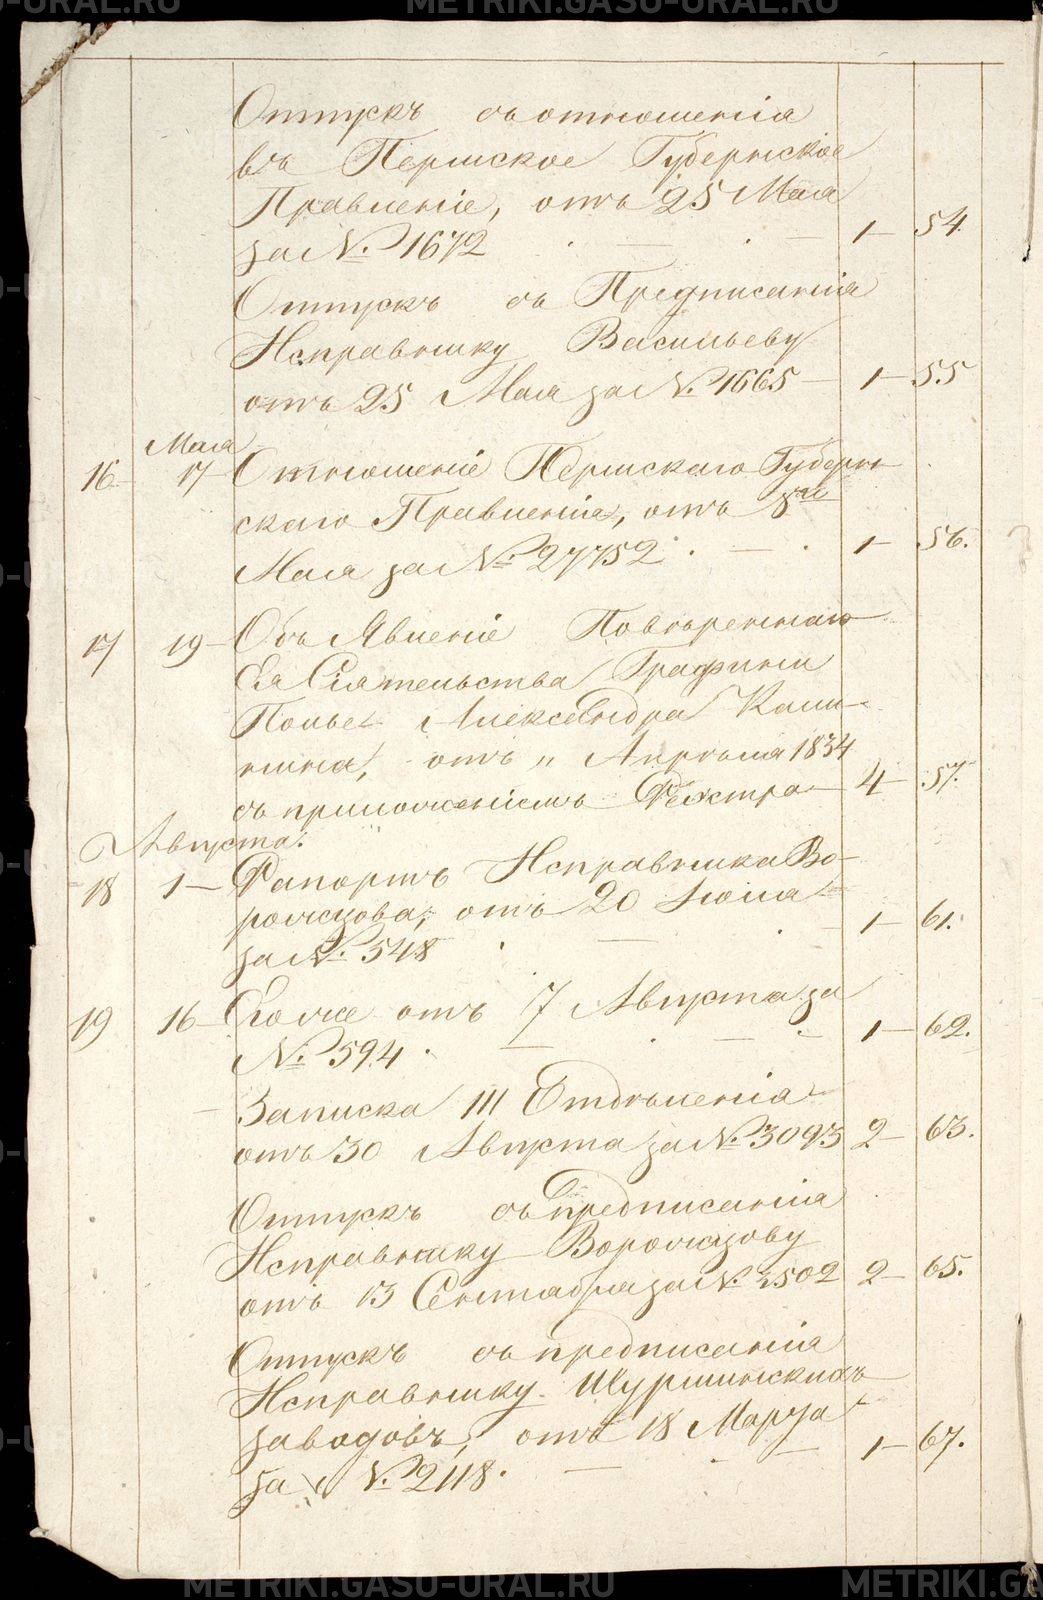 METRIKI.GASU-URAL.RU METRIKI.GASU-URAL.RU
Отпускъ съ отношенія
въ Пермское Губернское
Правленіе, отъ 25 Мая
за №. 1672 1— 54.
Отпускъ съ Предписанія
Исправнику Васильеву
отъ 25 Мая за №. 1665 — 1— 55
Мая
16 17 Отношеніе Пермскаго Губерн-
скаго Правленія, отъ 8го
Мая за №. 27752. 1— 56.
17 19 Объявленіе Повѣреннаго
Ея Сіятельства Графини
Полье Александра Кали-
нина, отъ „ Апрѣля 1834
съ приложеніемъ Реэстра 4— 57.
Августа.
18 1— Рапортъ Исправника Во-
рожцова, отъ 20 Іюля
за №. 548 1— 61.
19 16— Егоже отъ 7 Августа за
№. 594. 1— 62.
Записка III Отдѣленія
отъ 30 Августа за №. 3093 2— 63.
Отпускъ съ предписанія
Исправнику Ворожцову
отъ 13 Сентября за №. 3502 2— 65.
Отпускъ съ предписанія
Исправнику Шурминскихъ
заводовъ, отъ 18 Марта
за №. 2118. 1— 67.
METRIKI.GASU-URAL.RU METRIKI.GA